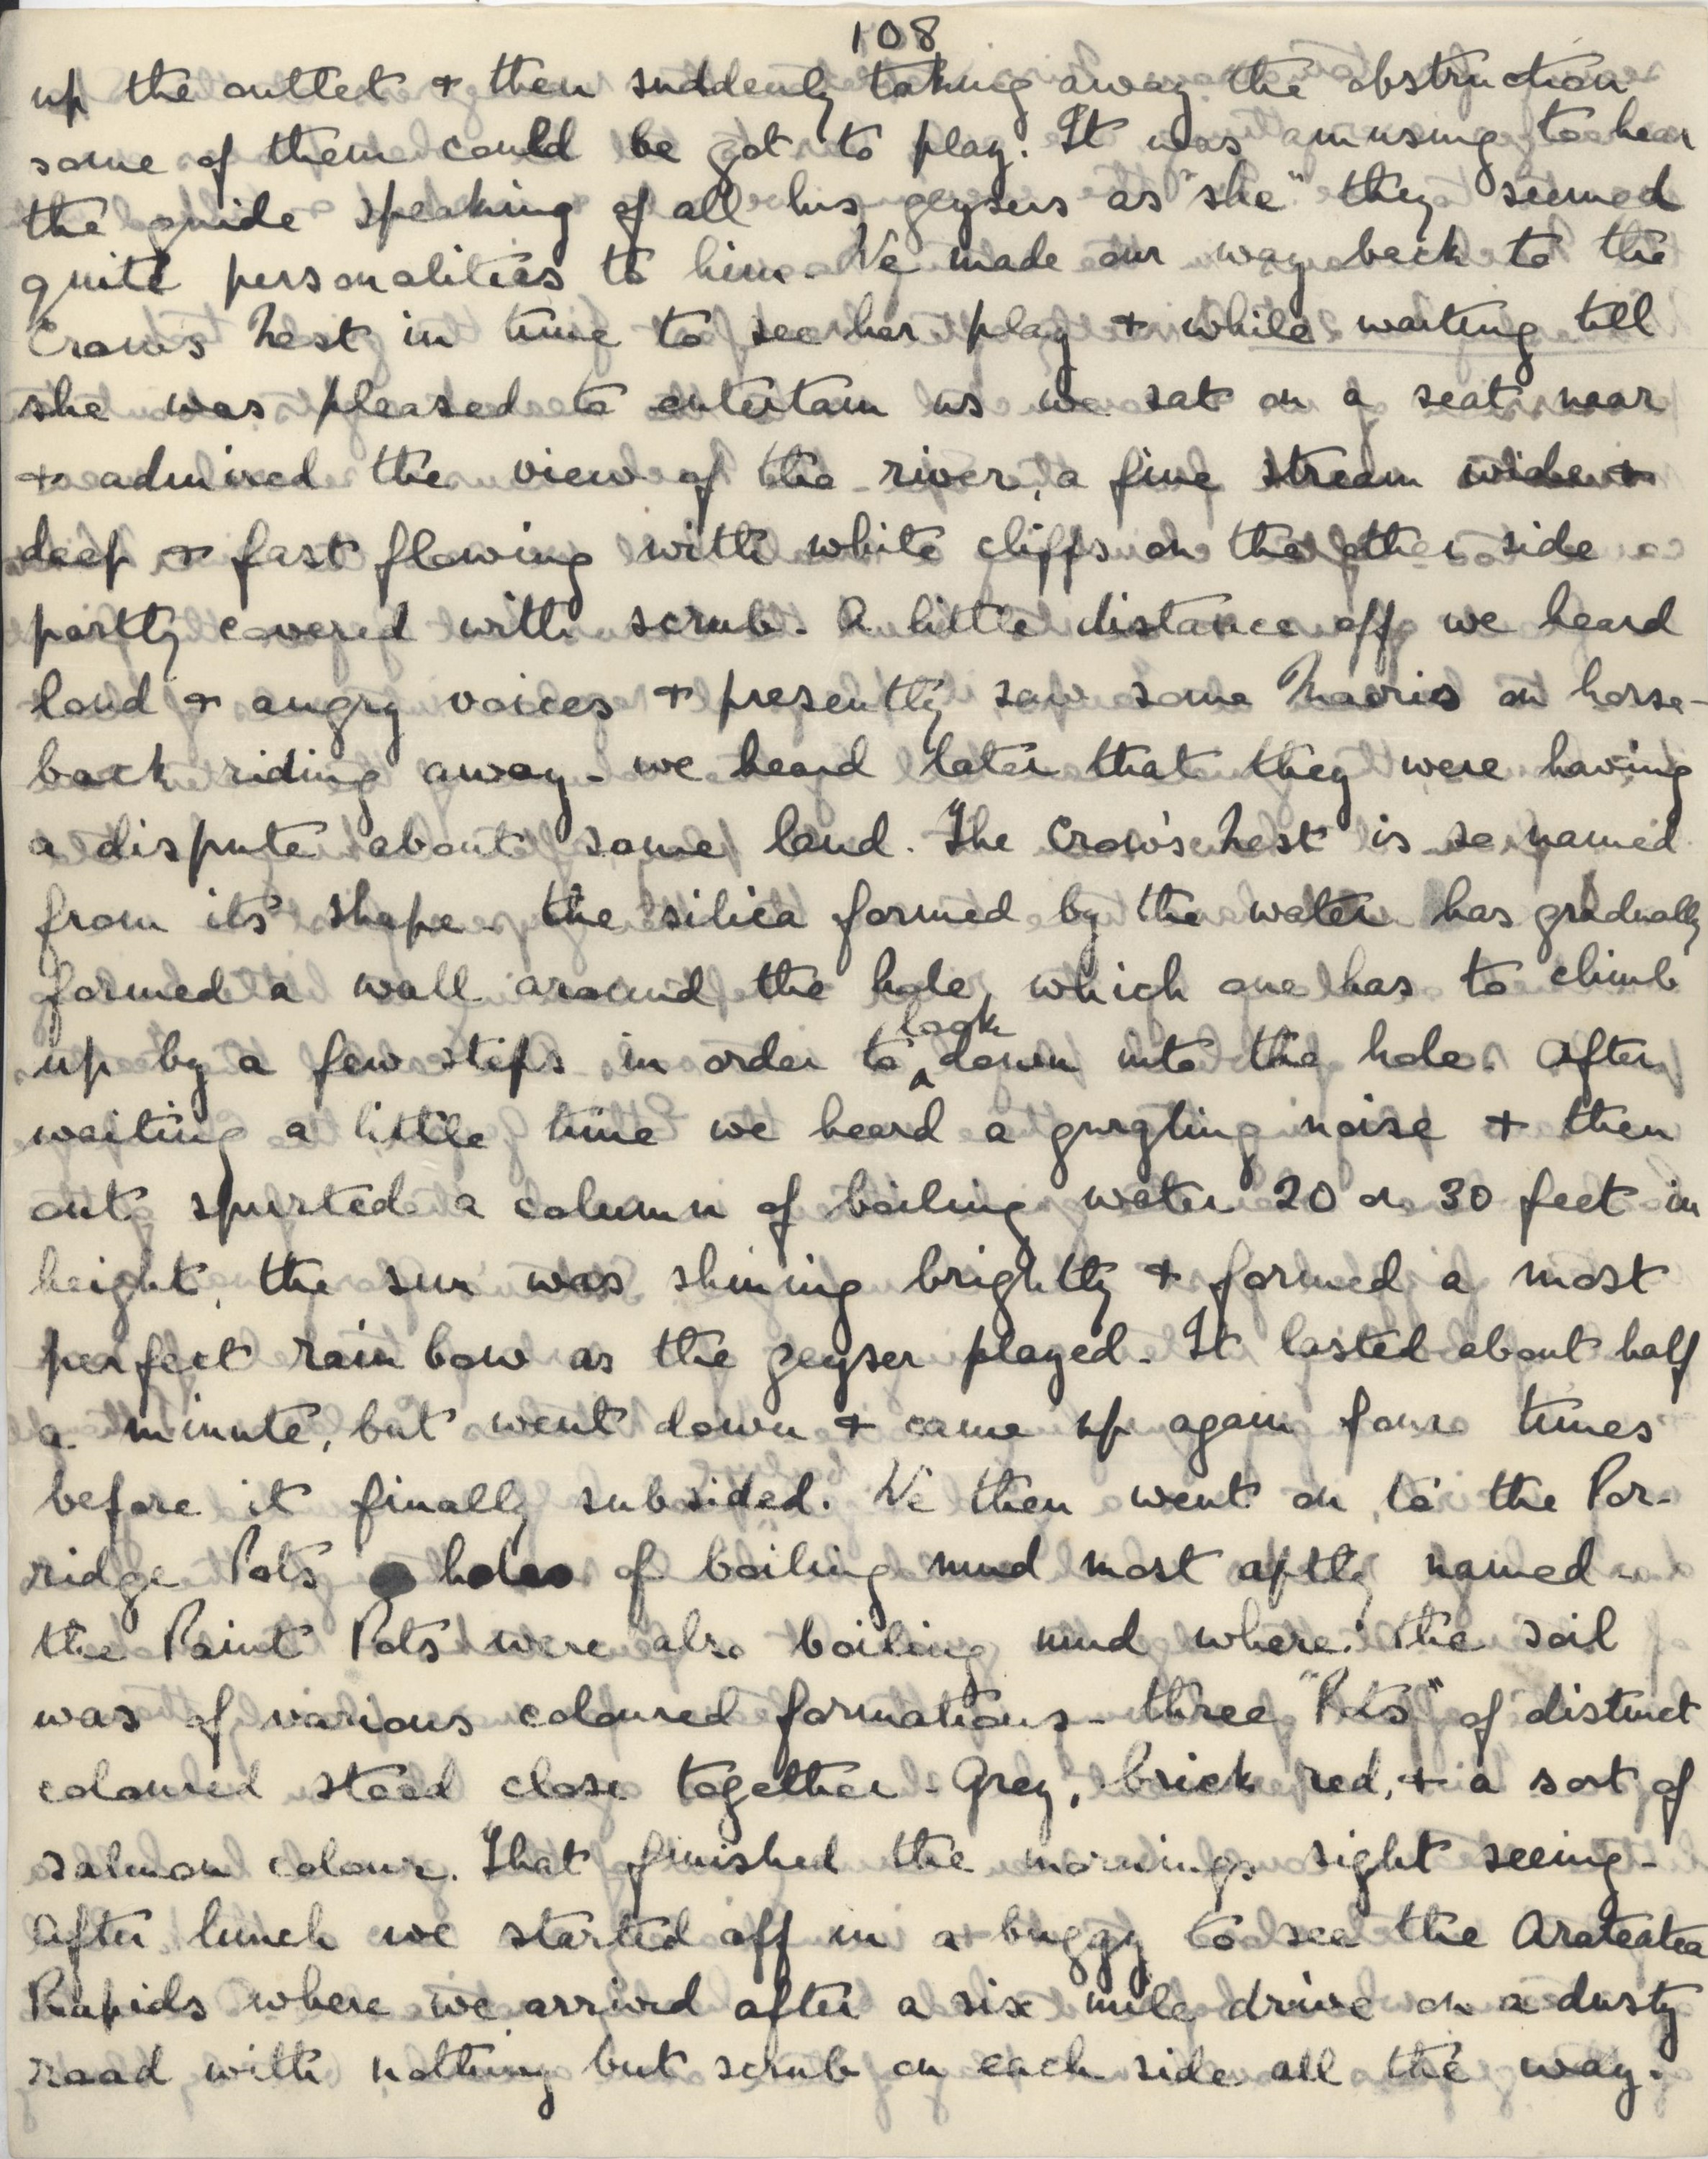 108
up the outlet & then suddenly taking away the obstruction
some of them could be got to play. It was amusing to hear
the guide speaking of all his geysers as "she" they seemed
quite personalities to him. We made our way back to the
Crow's Nest in time to see her play & while waiting till
she was pleased to entertain us we sat on a seat near
& admired the view of the river, a fine stream wide &
deep & fast flowing with white cliffs on the other side
partly covered with scrub. A little distance off we heard
loud & angry voices & presently saw some Maoris on horse-
back riding away - we heard later that they were having
a dispute about some land. The Crow's Nest is so named
from its shape - the silica formed by the water has gradually
formed a wall around the hole, which one has to climb
up by a few steps in order to look down into the hole. After
waiting a little time we heard a gurgling noise & then
out spurted a column of boiling water 20 or 30 feet in
height, the sun was shining brightly & formed a most
perfect rainbow as the geyser played. It lasted about half
a minute, but went down & came up again four times
before it finally subsided. We then went on to the Por-
ridge Pots holes of boiling mud most aptly named -
the Paint Pots were also boiling mud where the soil
was of various coloured formations - three "Pots" of distinct
coloured stood close together - Grey, brick red, & a sort of
salmon colour. That finished the mornings sight seeing -
After lunch we started off in a buggy to see the Arateatea
Rapids where we arrived after a six mile drive on a dusty
road with nothing but scrub on each side all the way.